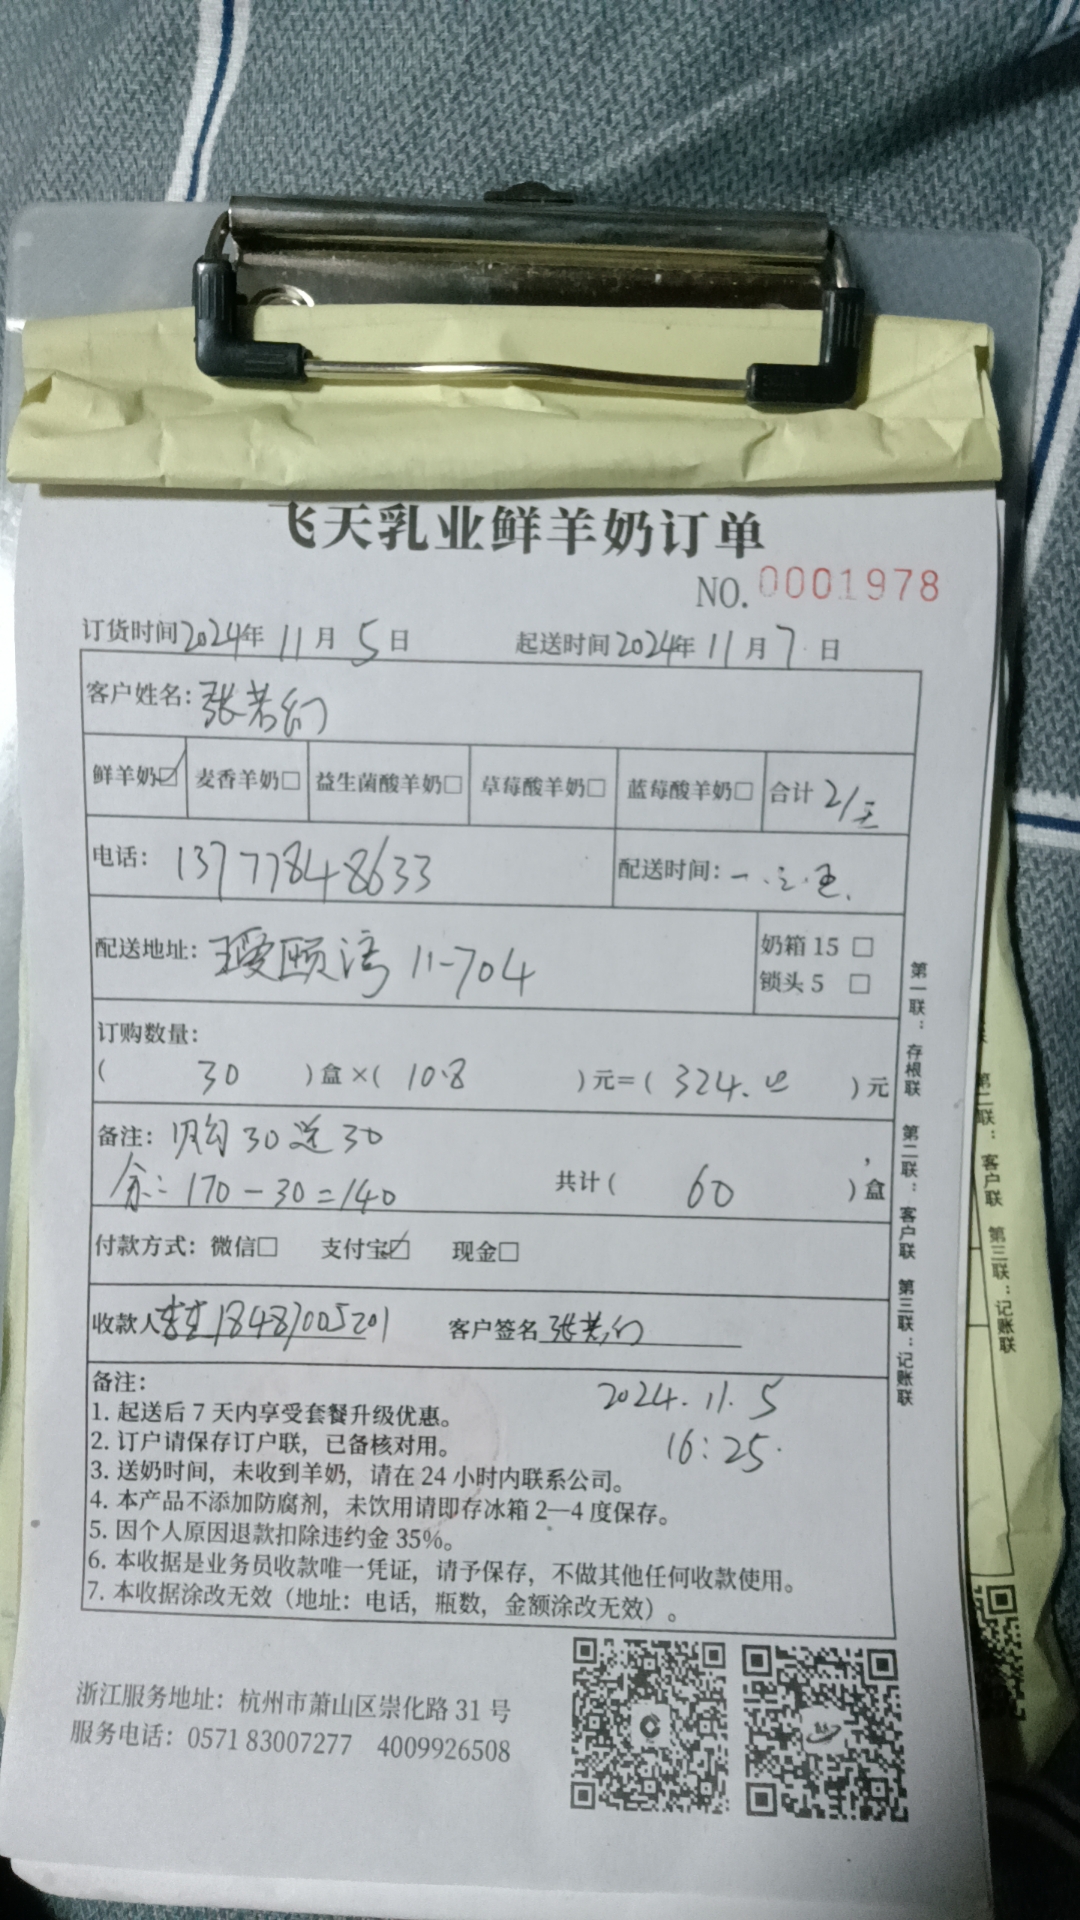 飞天乳业鲜羊奶订单
NO. 0001978
订货时间2024年 11月 5日 起送时间2024年 11月 7日
客户姓名：张若幻
鲜羊奶☑ 麦香羊奶□ 益生菌酸羊奶□ 草莓酸羊奶□ 蓝莓酸羊奶□ 合计 2/
电话：13777848633 配送时间：一.三.五.
配送地址：瑷颐湾 11-704
奶箱 15 □
锁头 5 □
订购数量：
( 30 ) 盒 ×( 10.8 ) 元＝( 324. ) 元
备注：购30送30
余：170-30=140 共计( 60 ) 盒
付款方式：微信□ 支付宝☑ 现金□
收款人 18487005201 客户签名 张若幻
备注：
2024.11.5
16:25.
1. 起送后 7 天内享受套餐升级优惠。
2. 订户请保存订户联，已备核对用。
3. 送奶时间，未收到羊奶，请在 24 小时内联系公司。
4. 本产品不添加防腐剂，未饮用请即存冰箱 2—4 度保存。
5. 因个人原因退款扣除违约金 35%。
6. 本收据是业务员收款唯一凭证，请予保存，不做其他任何收款使用。
7. 本收据涂改无效（地址：电话，瓶数，金额涂改无效）。
第一联：存根联 第二联：客户联 第三联：记账联
第二联：客户联 第三联：记账联
浙江服务地址：杭州市萧山区崇化路 31 号
服务电话：0571 83007277 4009926508